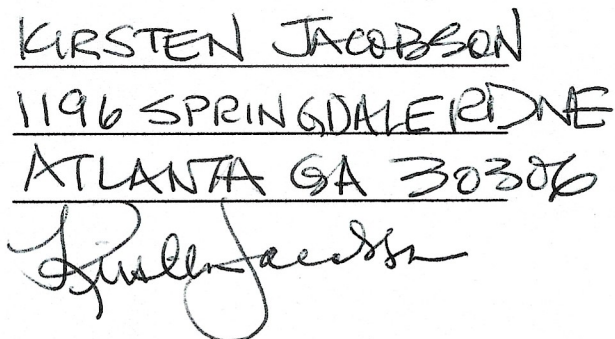 KIRSTEN JACOBSON
1196 SPRINGDALE RD NE
ATLANTA GA 30306
Kirsten Jacobson